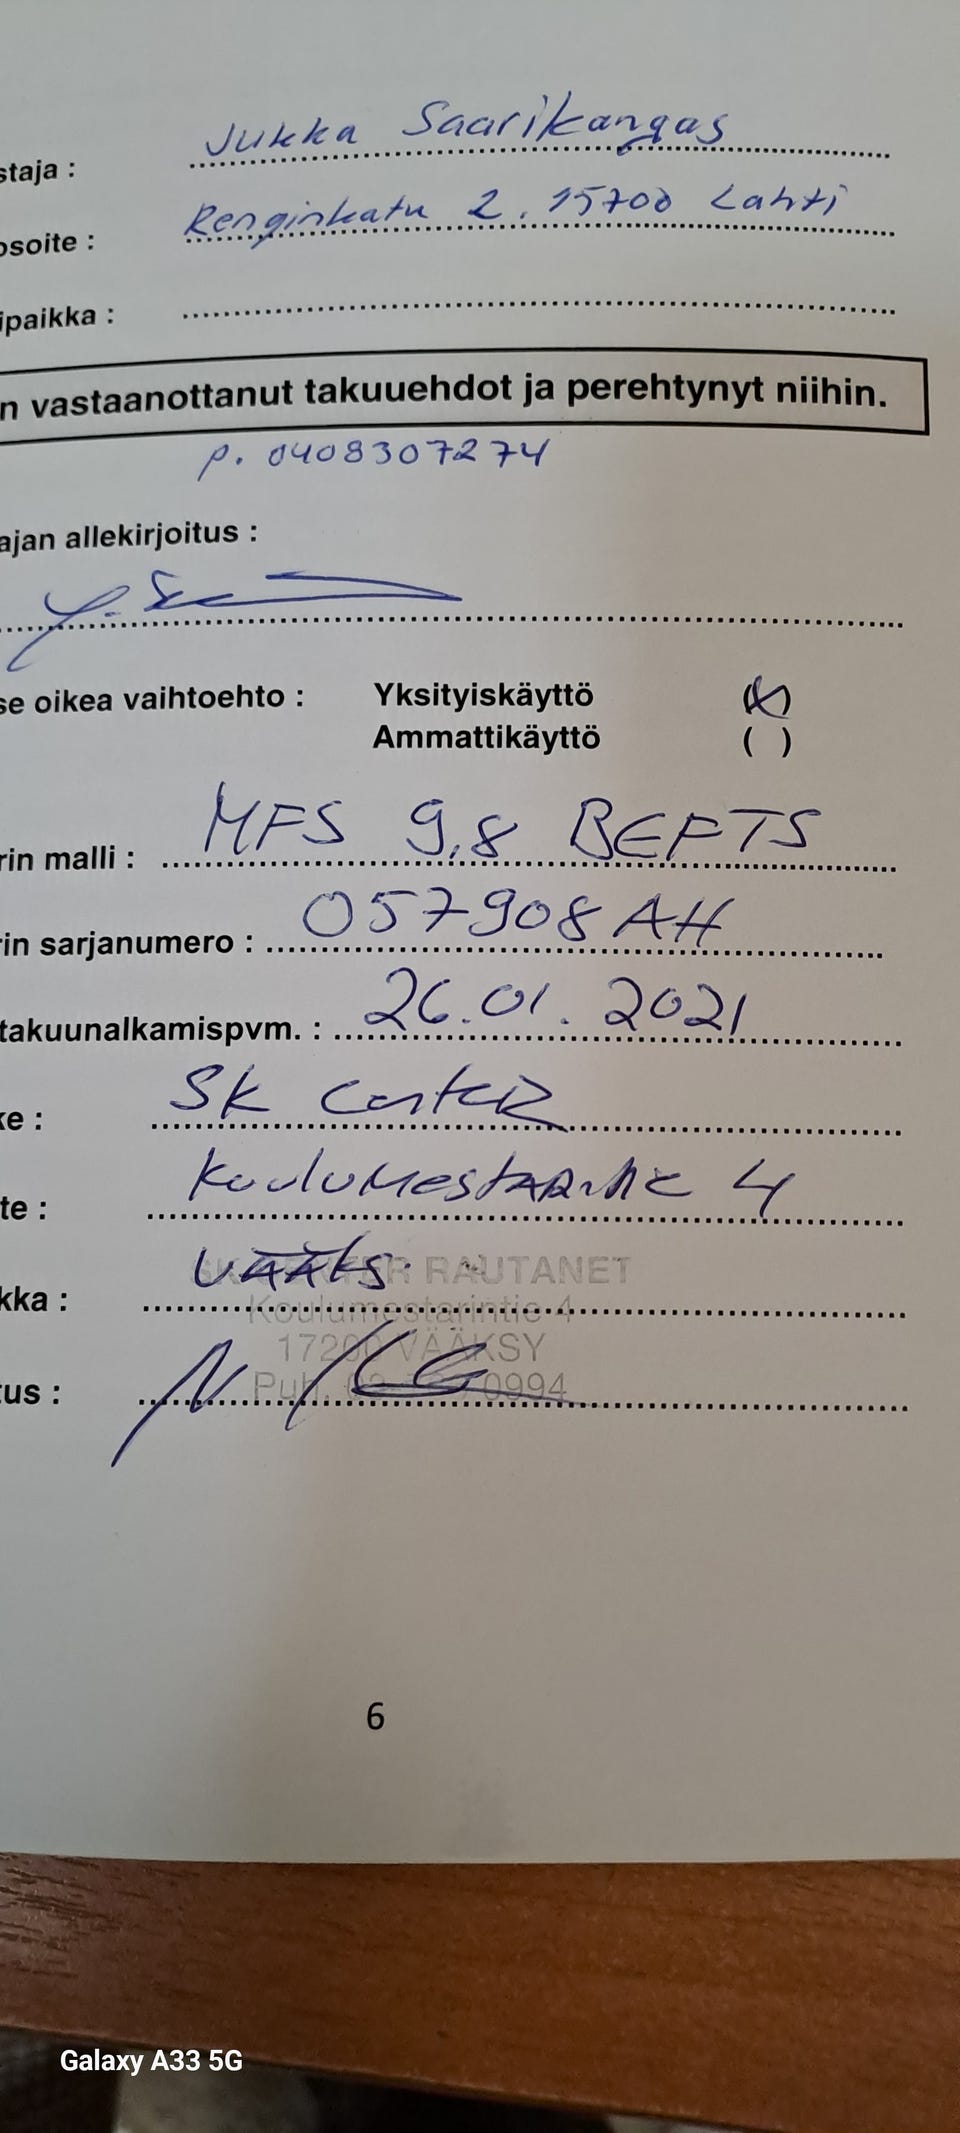 staja : Jukka Saarikangas
osoite : Renginkatu 2, 15700 Lahti
ipaikka :
n vastaanottanut takuuehdot ja perehtynyt niihin.
p. 0408307274
ajan allekirjoitus :
se oikea vaihtoehto : Yksityiskäyttö (x)
Ammattikäyttö ( )
rin malli : MFS 9,8 BEFTS
rin sarjanumero : 057908 AH
takuunalkamispvm. : 26.01.2021
ke : SK Center
te : Koulumestarintie 4
kka : Vääks
RAUTANET
Koulumestarintie 4
17200 VÄÄKSY
tus :
Puh. 0994
6
Galaxy A33 5G